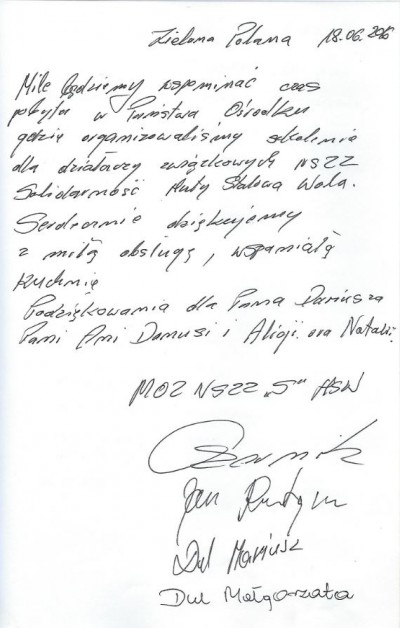 Zielona Polana 18.06.2016
Mile będziemy wspominać czas
pobytu w Państwa Ośrodku
gdzie organizowaliśmy szkolenia
dla działaczy związkowych NSZZ
Solidarność Huty Stalowa Wola.
Serdecznie dziękujemy
z miłą obsługę, wspaniałą
kuchnię
Podziękowania dla Pana Dariusza
Pani Ani Danusi i Alicji. oraz Natalii.
MOZ NSZZ „S" HSW
Jan
Dul Mariusz
Dul Małgorzata